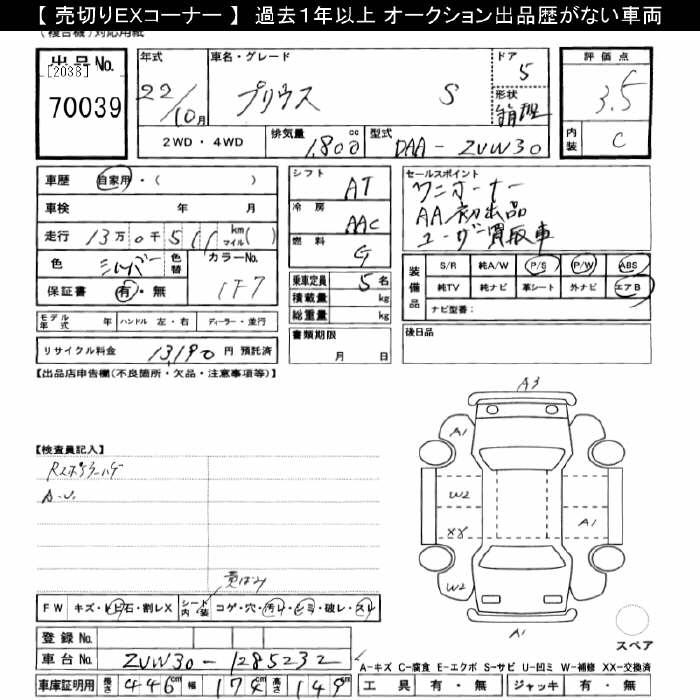 【 売切りEXコーナー 】 過去1年以上 オークション出品歴がない車両
(複合機)対応用紙
出品No.
[2038]
70039
年式
22/10月
車名・グレード
プリウス S
ドア 5
形状
評価点
3.5
内装 C
2WD・4WD
排気量 1,800 cc
型式 DAA-ZVW30
車歴 自家用・( )
車検 年 月
走行 13万0千511 km マイル( )
色 シルバー 色替
カラーNo. 1F7
保証書 有・無
シフト AT
冷房 AAC
燃料 G
乗車定員 5名
積載量 kg
総重量 kg
書類期限
月 日
セールスポイント
ワンオーナー
AA初出品
ユーザー買取車
装備品
S/R 純A/W P/S P/W ABS
純TV 純ナビ 革シート 外ナビ エアB
ナビ型番:
後日品
モデル年式 年 ハンドル 左・右 ディーラー・並行
リサイクル料金 13,190円 預託済
【出品店申告欄(不良箇所・欠品・注意事項等)】
【検査員記入】
Rスポイラーハゲ
A.U.
A3
A1
W2
XX
A1
W2
A1
黄ばみ
FW キズ・ヒビ石・割レX シート内装 コゲ・穴・汚レ・シミ・破レ・スレ
スペア
登録No.
車台No. ZVW30-1285232
A-キズ C-腐食 E-エクボ S-サビ U-凹ミ W-補修 XX-交換済
車庫証明用 長さ 446cm 幅 174cm 高さ 149cm
工具 有・無 ジャッキ 有・無